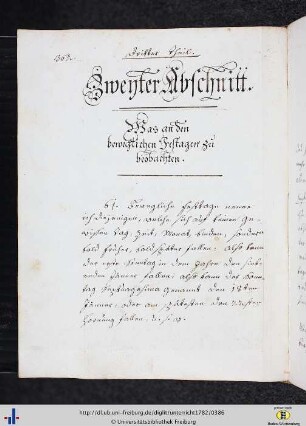 362.
Dritter Theil.
Zweyter Abschnitt.
Was an den
beweglichen Festagen zu
beobachten.
61. Bewegliche Festtage nenne
ich diejenigen, welche sich auf keinen ge-
wissen Tag, Zeit, Monat binden, sondern
bald früher, bald später fallen. also kann
der erste Sonntag in dem Jahre den
Jäner fallen: also kann der Sonn-
tag Septuagesima genannt den 18ten
Jänner, oder am spätesten den
Hornung fallen. u. s. w.
http://dl.ub.uni-freiburg.de/diglit/unterricht1782/0386
© Universitätsbibliothek Freiburg
DFG
Baden-Württemberg